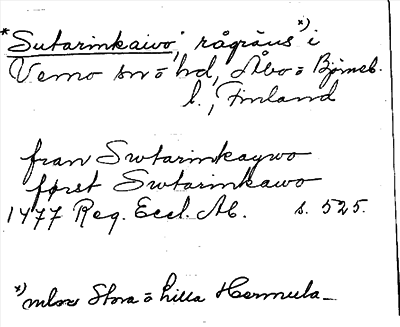 *Sutarinkaivo, rågråns *) i
Vemo sn o hd, Åbo o Björneb.
l., Finland
fran Swtarinkaywo
først Swtarinkawo
1477 Reg. Eccl. Ab. s. 525.
*) mlwa Stora o Lilla Hermula